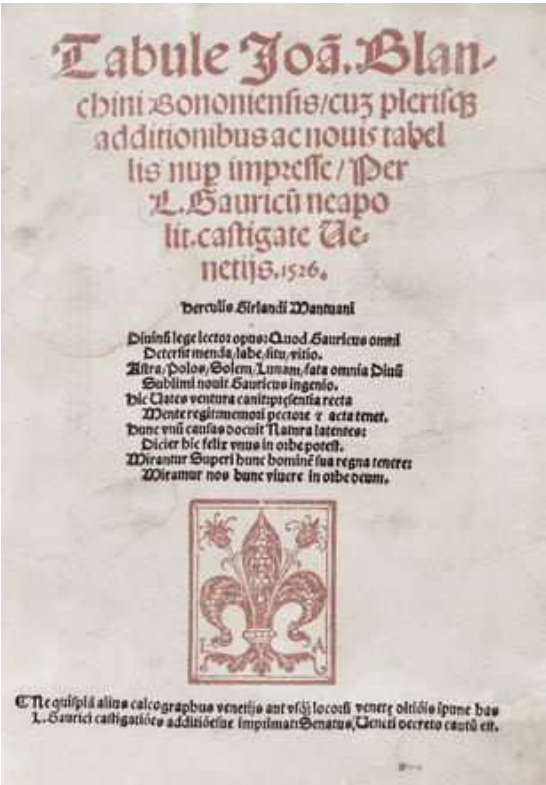 Tabule Joā. Blan-
chini Bononiensis/cuʒ plerisqʒ
additionibus ac nouis tabel
lis nuꝑ impresse/Per
L. Gauricū neapo
lit. castigate Ue-
netijs. 1526.
Herculis Girlandi Mantuani
Diuinū lege lector opus: Quod Gauricus omni
Detersit menda/labe/situ/vitio.
Astra/Polos/Solem/Lunam/fata omnia Diuū
Sublimi nouit Gauricus ingenio.
Hic Uates ventura canit: pręsentia recta
Mente regit: memori pectore ⁊ acta tenet.
Hunc vnū causas docuit Natura latentes:
Dicier hic felix vnus in orbe potest.
Mirantur Superi hunc hominē sua regna tenere:
Miramur nos hunc viuere in orbe deum.
L A
¶ Ne quispiā alius calcographus venetijs aut vsqʒ locorū venetę ditiōis īpune has
L. Gaurici castigatiōes additiōesue imprimat: Senatus, Ueneti decreto cautū est.